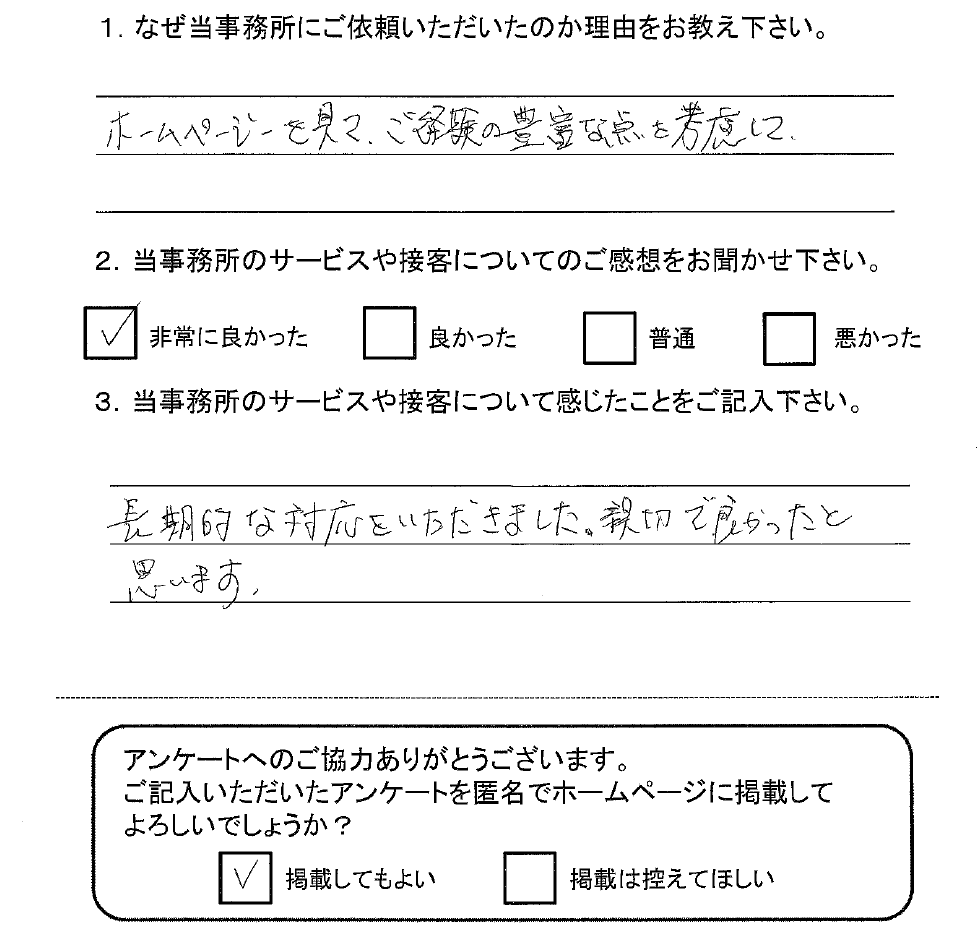 1. なぜ当事務所にご依頼いただいたのか理由をお教え下さい。
ホームページを見て、ご経験の豊富な点を考慮して、
2. 当事務所のサービスや接客についてのご感想をお聞かせ下さい。
✓ 非常に良かった □ 良かった □ 普通 □ 悪かった
3. 当事務所のサービスや接客について感じたことをご記入下さい。
長期的な対応をいただきました。親切で良かったと
思います。
アンケートへのご協力ありがとうございます。
ご記入いただいたアンケートを匿名でホームページに掲載して
よろしいでしょうか？
✓ 掲載してもよい □ 掲載は控えてほしい